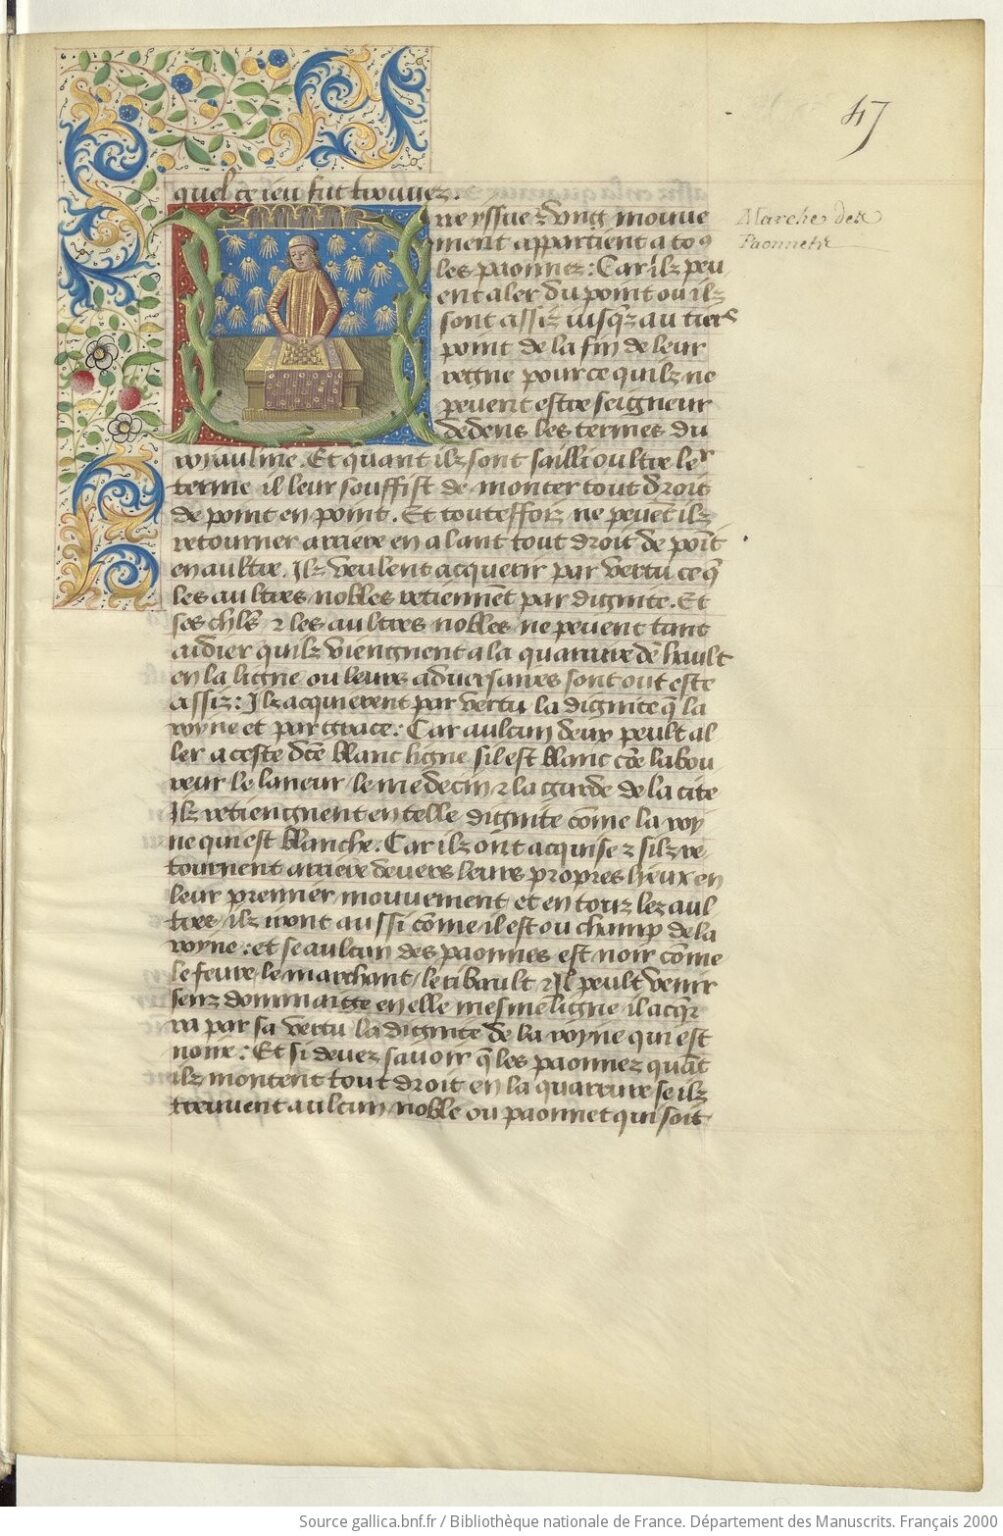 47
quel ce ieu fut trouuez.
Marche des
Paonnets
Une yssue & dung mouue
ment appartient a to9
les paonnez: Car ilz peu
ent aler du point ou ilz
sont assiz iusqz au tiers
point de la fin de leur
regne pource quilz ne
peuent estre seigneur
dedens les termes du
royaulme. Et quant ilz sont sailli oultre ler
terme il leur souffist de monter tout droit
de point en point. Et touteffoiz ne peuēt ilz
retourner arriere en alant tout droit de poīt
en aultre. Ilz veulent acquerir par vertu ce q̄
les aultres nobles retiennēt par dignite. Et
ses chl̄s & les aultres nobles ne peuent tant
aidier quilz viengnent a la quarrure de hault
en la ligne ou leurs aduersaires sont out este
assiz: Ilz acquierent par vertu la dignite q̄ la
royne et par grace: Car aulcun deux peult al
ler a ceste dc̄e blanc ligne sil est blanc cōe labou
reur le laneur le medecin & la garde de la cite
Ilz retiengnent en telle dignite cōme la roy
ne qui est blanche. Car ilz ont acquise & silz re
tournent arriere deuers leurs propres lieux en
leur premier mouuement et en touz lez aul
tres ilz vont aussi cōme il est ou champ de la
royne: et se aulcun des paonnes est noir cōme
le feure le marchant le ribault & Il peult venir
senz dommaige en elle mesme ligne il acq̄r
ra par sa vertu la dignite de la royne qui est
noire: Et si deuez sauoir q̄ les paonnez quāt
ilz montent tout droit en la quarrure se ilz
treuuent aulcun noble ou paonnet qui soit
Source gallica.bnf.fr / Bibliothèque nationale de France. Département des Manuscrits. Français 2000